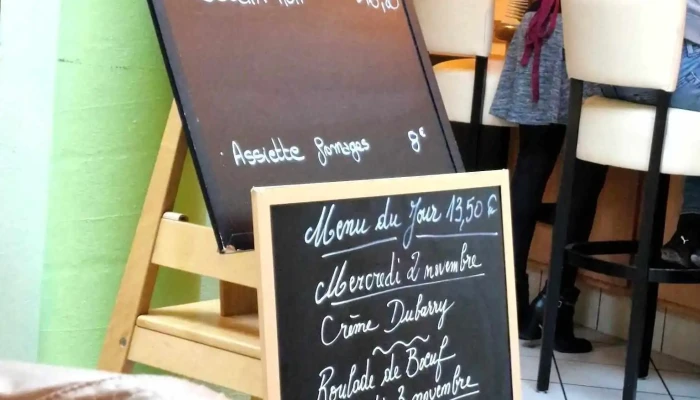 Assiette fromages 8€
Menu du Jour 13,50 €
Mercredi 2 novembre
Crème Dubarry
Roulade de Bœuf
3 novembre